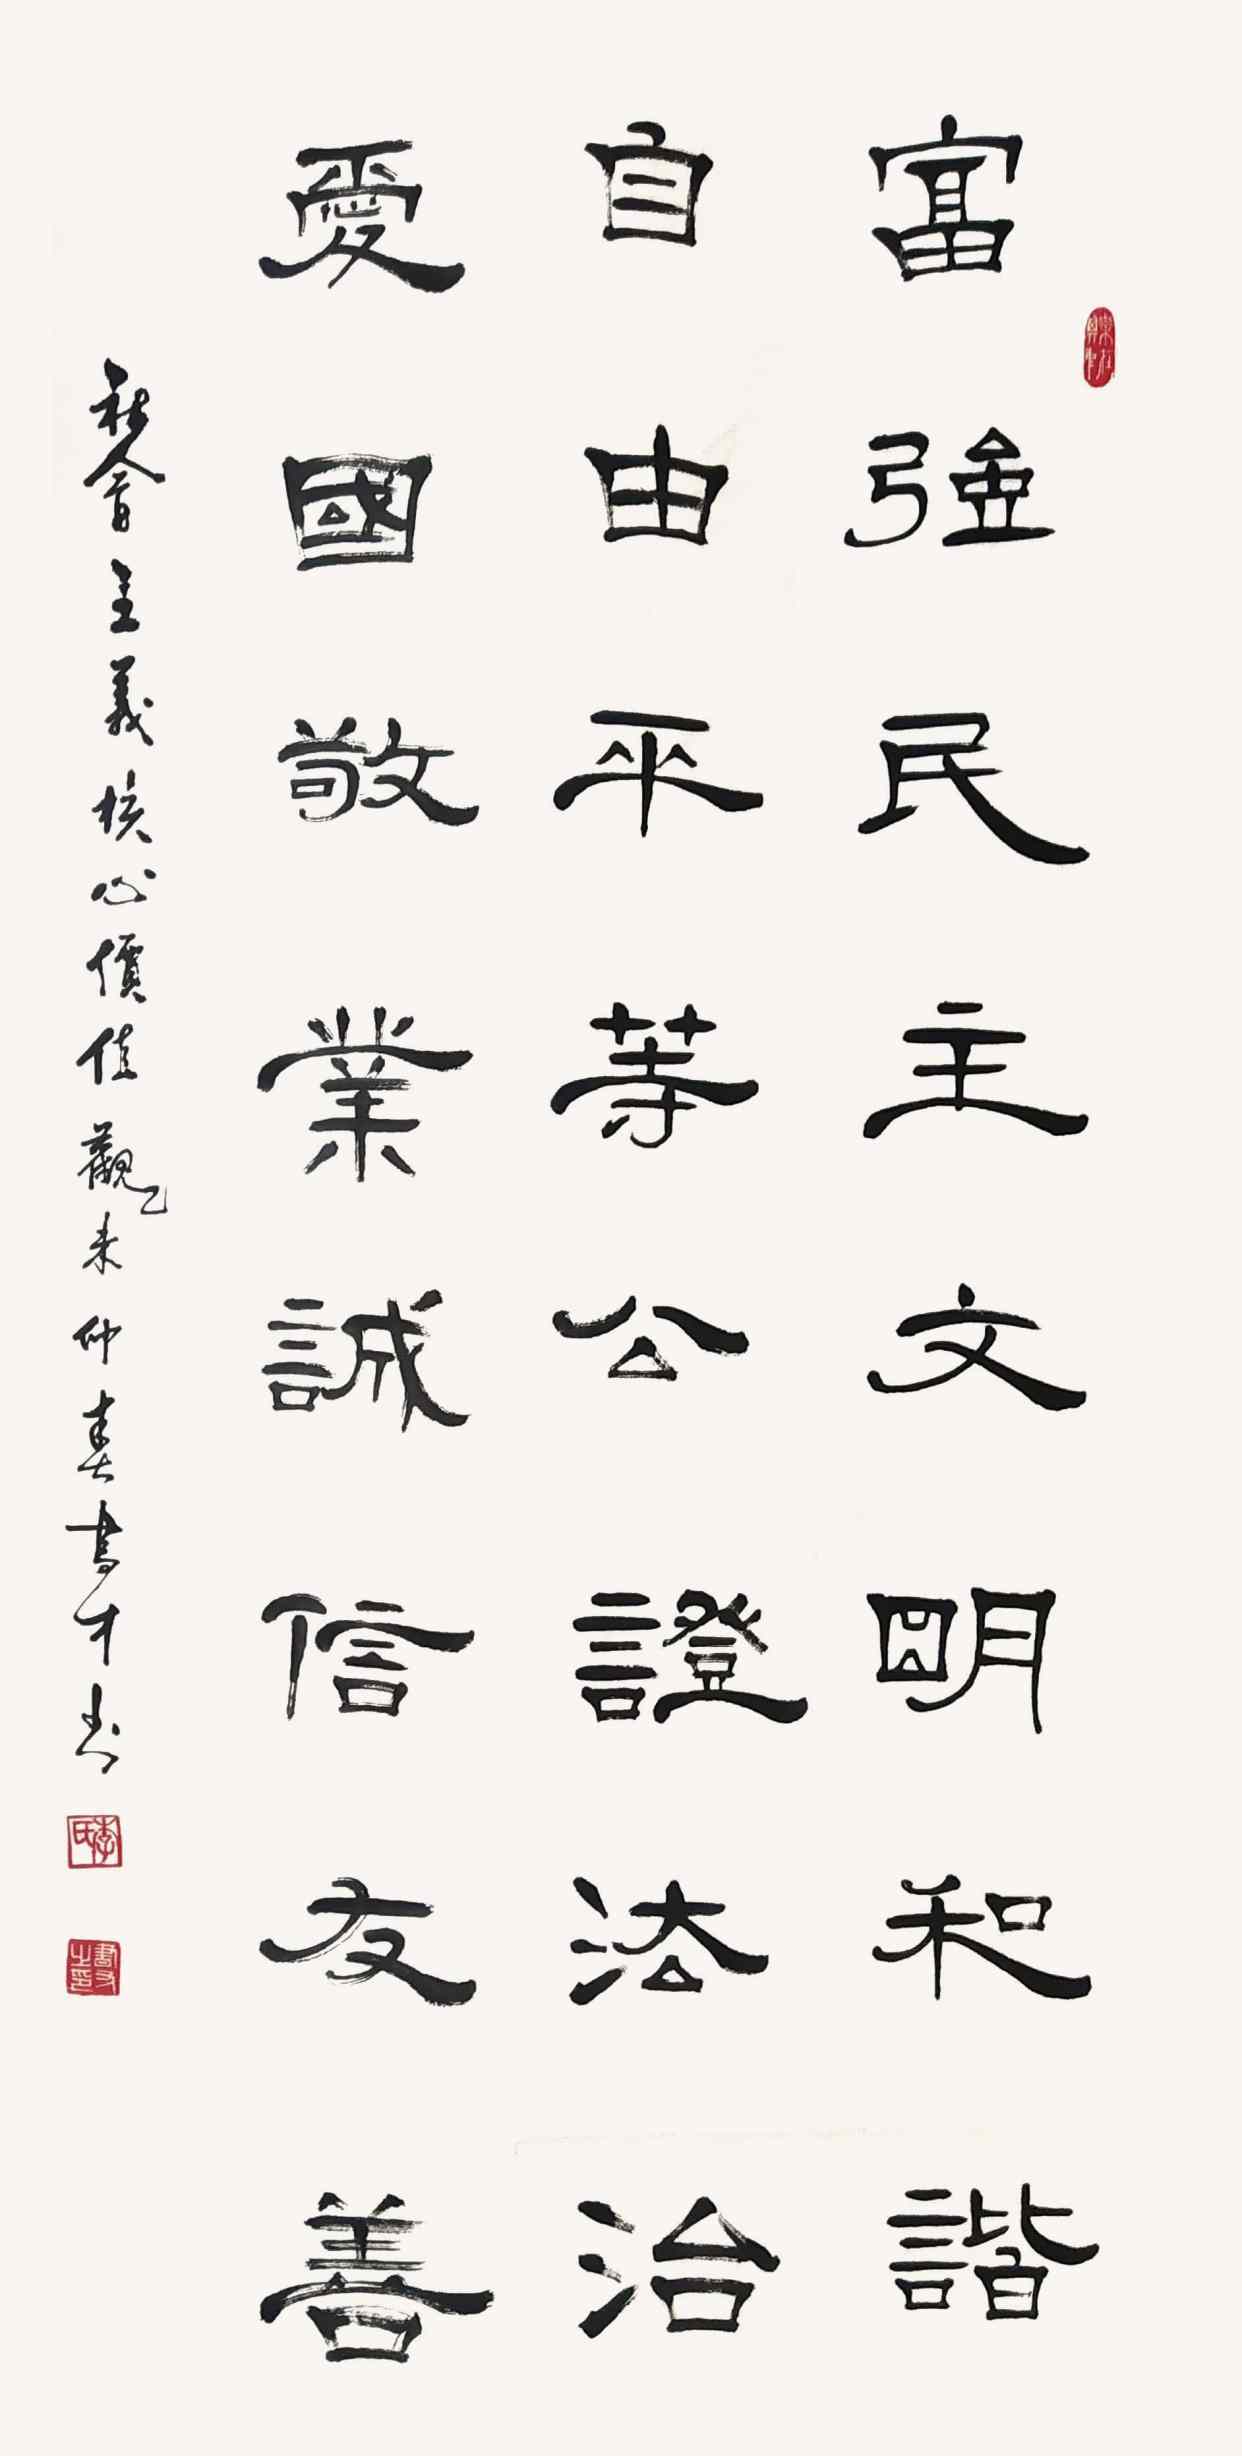 富強民主文明和諧
自由平等公證法治
愛國敬業誠信友善
社會主義核心價值觀乙未仲春書才书
李氏